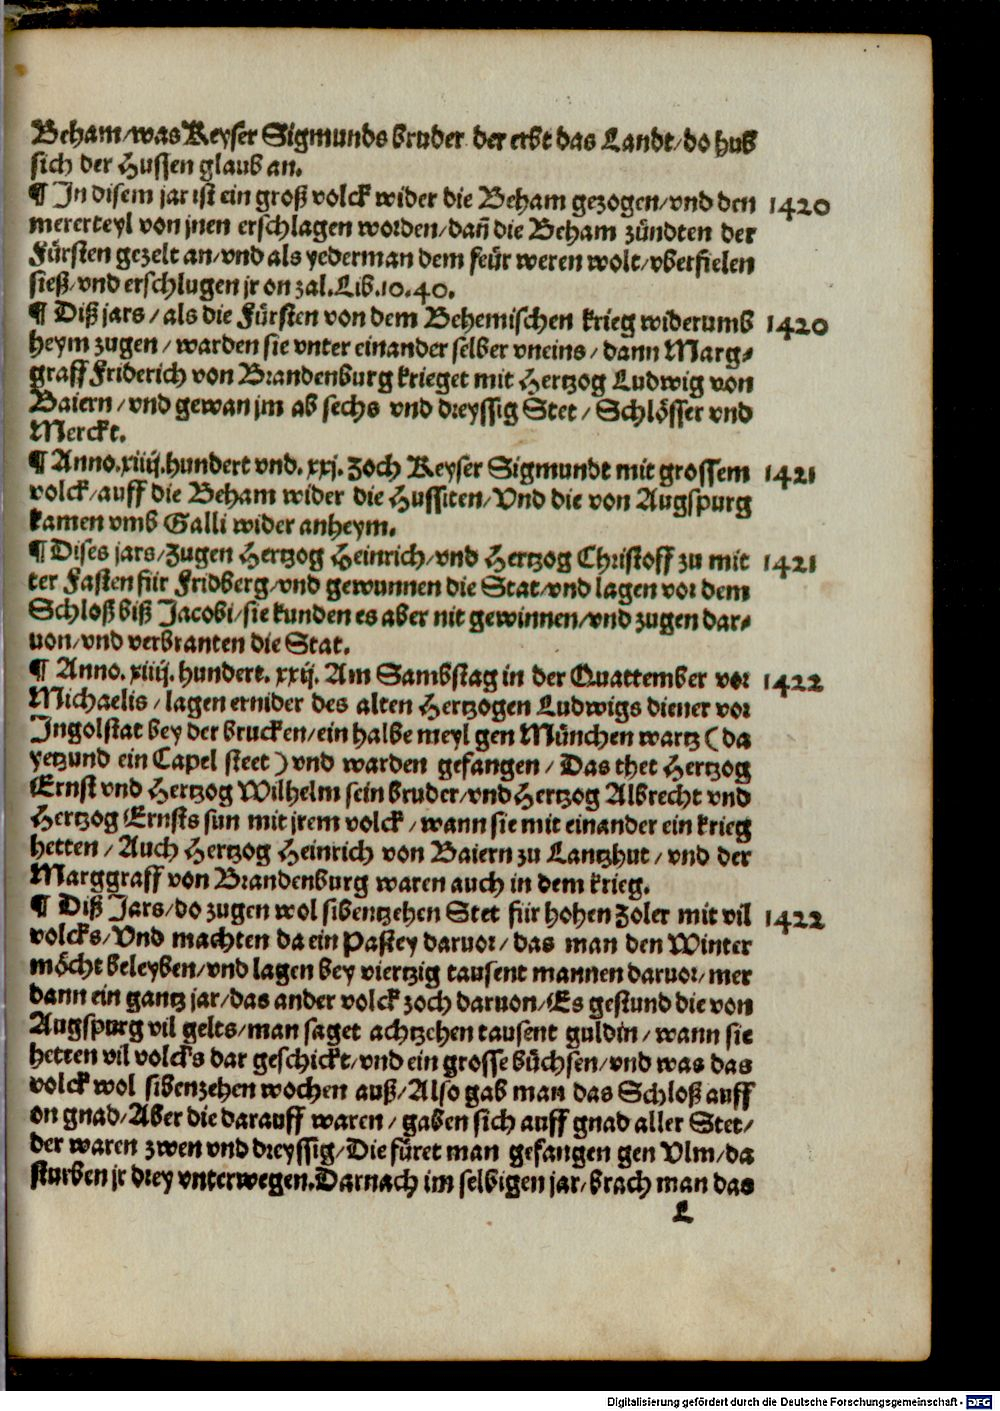 Beham/was Keyser Sigmunds bruder der erbt das Landt/do hub
sich der Hussen glaub an.
¶ In disem jar ist ein groß volck wider die Beham gezogen/vnd den 1420
mererteyl von jnen erschlagen worden/dañ die Beham zündten der
Fürsten gezelt an/vnd als yederman dem feür weren wolt/vberfielen
sieß/vnd erschlugen jr on zal.Lib.10.40.
¶ Diß jars/als die Fürsten von dem Behemischen krieg widerumb 1420
heym zugen/warden sie vnter einander selber vneins/dann Marg⸗
graff Friderich von Brandenburg krieget mit Hertzog Ludwig von
Baiern/vnd gewan jm ab sechs vnd dreyssig Stet/Schlösser vnd
Merckt.
¶ Anno.xiiij.hundert vnd.xxj.Zoch Keyser Sigmundt mit grossem 1421
volck/auff die Beham wider die Hussiten/Vnd die von Augspurg
kamen vmb Galli wider anheym.
¶ Dises jars/Zugen Hertzog Heinrich/vnd Hertzog Christoff zu mit 1421
ter Fasten für Fridberg/vnd gewunnen die Stat/vnd lagen vor dem
Schloß biß Jacobi/sie kunden es aber nit gewinnen/vnd zugen dar⸗
uon/vnd verbranten die Stat.
¶ Anno.xiiij.hundert.xxij.Am Sambstag in der Quattember vor 1422
Michaelis/lagen ernider des alten Hertzogen Ludwigs diener vor
Ingolstat bey der brucken/ein halbe meyl gen München wartz (da
yetzund ein Capel steet) vnd warden gefangen/Das thet Hertzog
Ernst vnd Hertzog Wilhelm sein bruder/vnd Hertzog Albrecht vnd
Hertzog Ernsts sun mit jrem volck/wann sie mit einander ein krieg
hetten/Auch Hertzog Heinrich von Baiern zu Lantzhut/vnd der
Marggraff von Brandenburg waren auch in dem krieg.
¶ Diß Jars/do zugen wol sibentzehen Stet für hohen Zoler mit vil 1422
volcks/Vnd machten da ein Pastey daruor/das man den Winter
möcht beleyben/vnd lagen bey viertzig tausent mannen daruor/mer
dann ein gantz jar/das ander volck zoch daruon/Es gestund die von
Augspurg vil gelts/man saget achtzehen tausent guldin/wann sie
hetten vil volcks dar geschickt/vnd ein grosse büchsen/vnd was das
volck wol sibenzehen wochen auß/Also gab man das Schloß auff
on gnad/Aber die darauff waren/gaben sich auff gnad aller Stet/
der waren zwen vnd dreyssig/Die füret man gefangen gen Vlm/da
sturben jr drey vnterwegen.Darnach im selbigen jar/brach man das
L
Digitalisierung gefördert durch die Deutsche Forschungsgemeinschaft - DFG